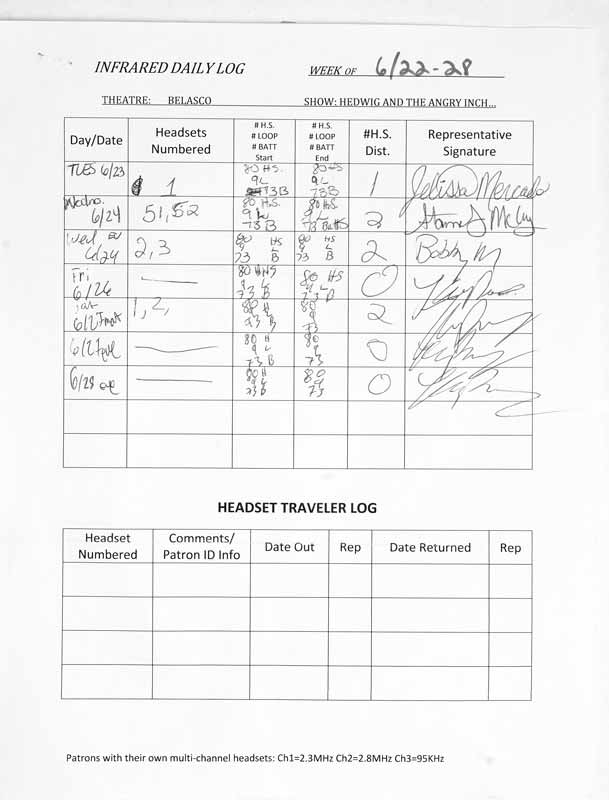 INFRARED DAILY LOG WEEK OF 6/22-28
THEATRE: BELASCO SHOW: HEDWIG AND THE ANGRY INCH...
Day/Date Headsets Numbered # H.S. # LOOP # BATT Start # H.S. # LOOP # BATT End #H.S. Dist. Representative Signature
TUES 6/23 1 80 H.S. 9 L 73 B 80 HS 9 L 73 B 1 Jelissa Mercado
6/24 51, 52 80 H.S. 9 L 73 B 80 H.S. 9 L 73 Batts 2
Wed, ev 6/24 2, 3 80 HS 9 L 73 B 80 HS 9 L 73 B 2 Bobby
Fri 6/26 — 80 HS 9 L 73 B 80 HS 9 L 73 B 0
Sat 6/27 mat 1, 2, 80 H 9 L 73 B 80 9 73 2
6/27 eve — 80 H 9 L 73 B 80 9 73 0
6/28 eve — 80 H 9 L 73 B 80 9 73 0
HEADSET TRAVELER LOG
Headset Numbered Comments/ Patron ID Info Date Out Rep Date Returned Rep
Patrons with their own multi-channel headsets: Ch1=2.3MHz Ch2=2.8MHz Ch3=95KHz